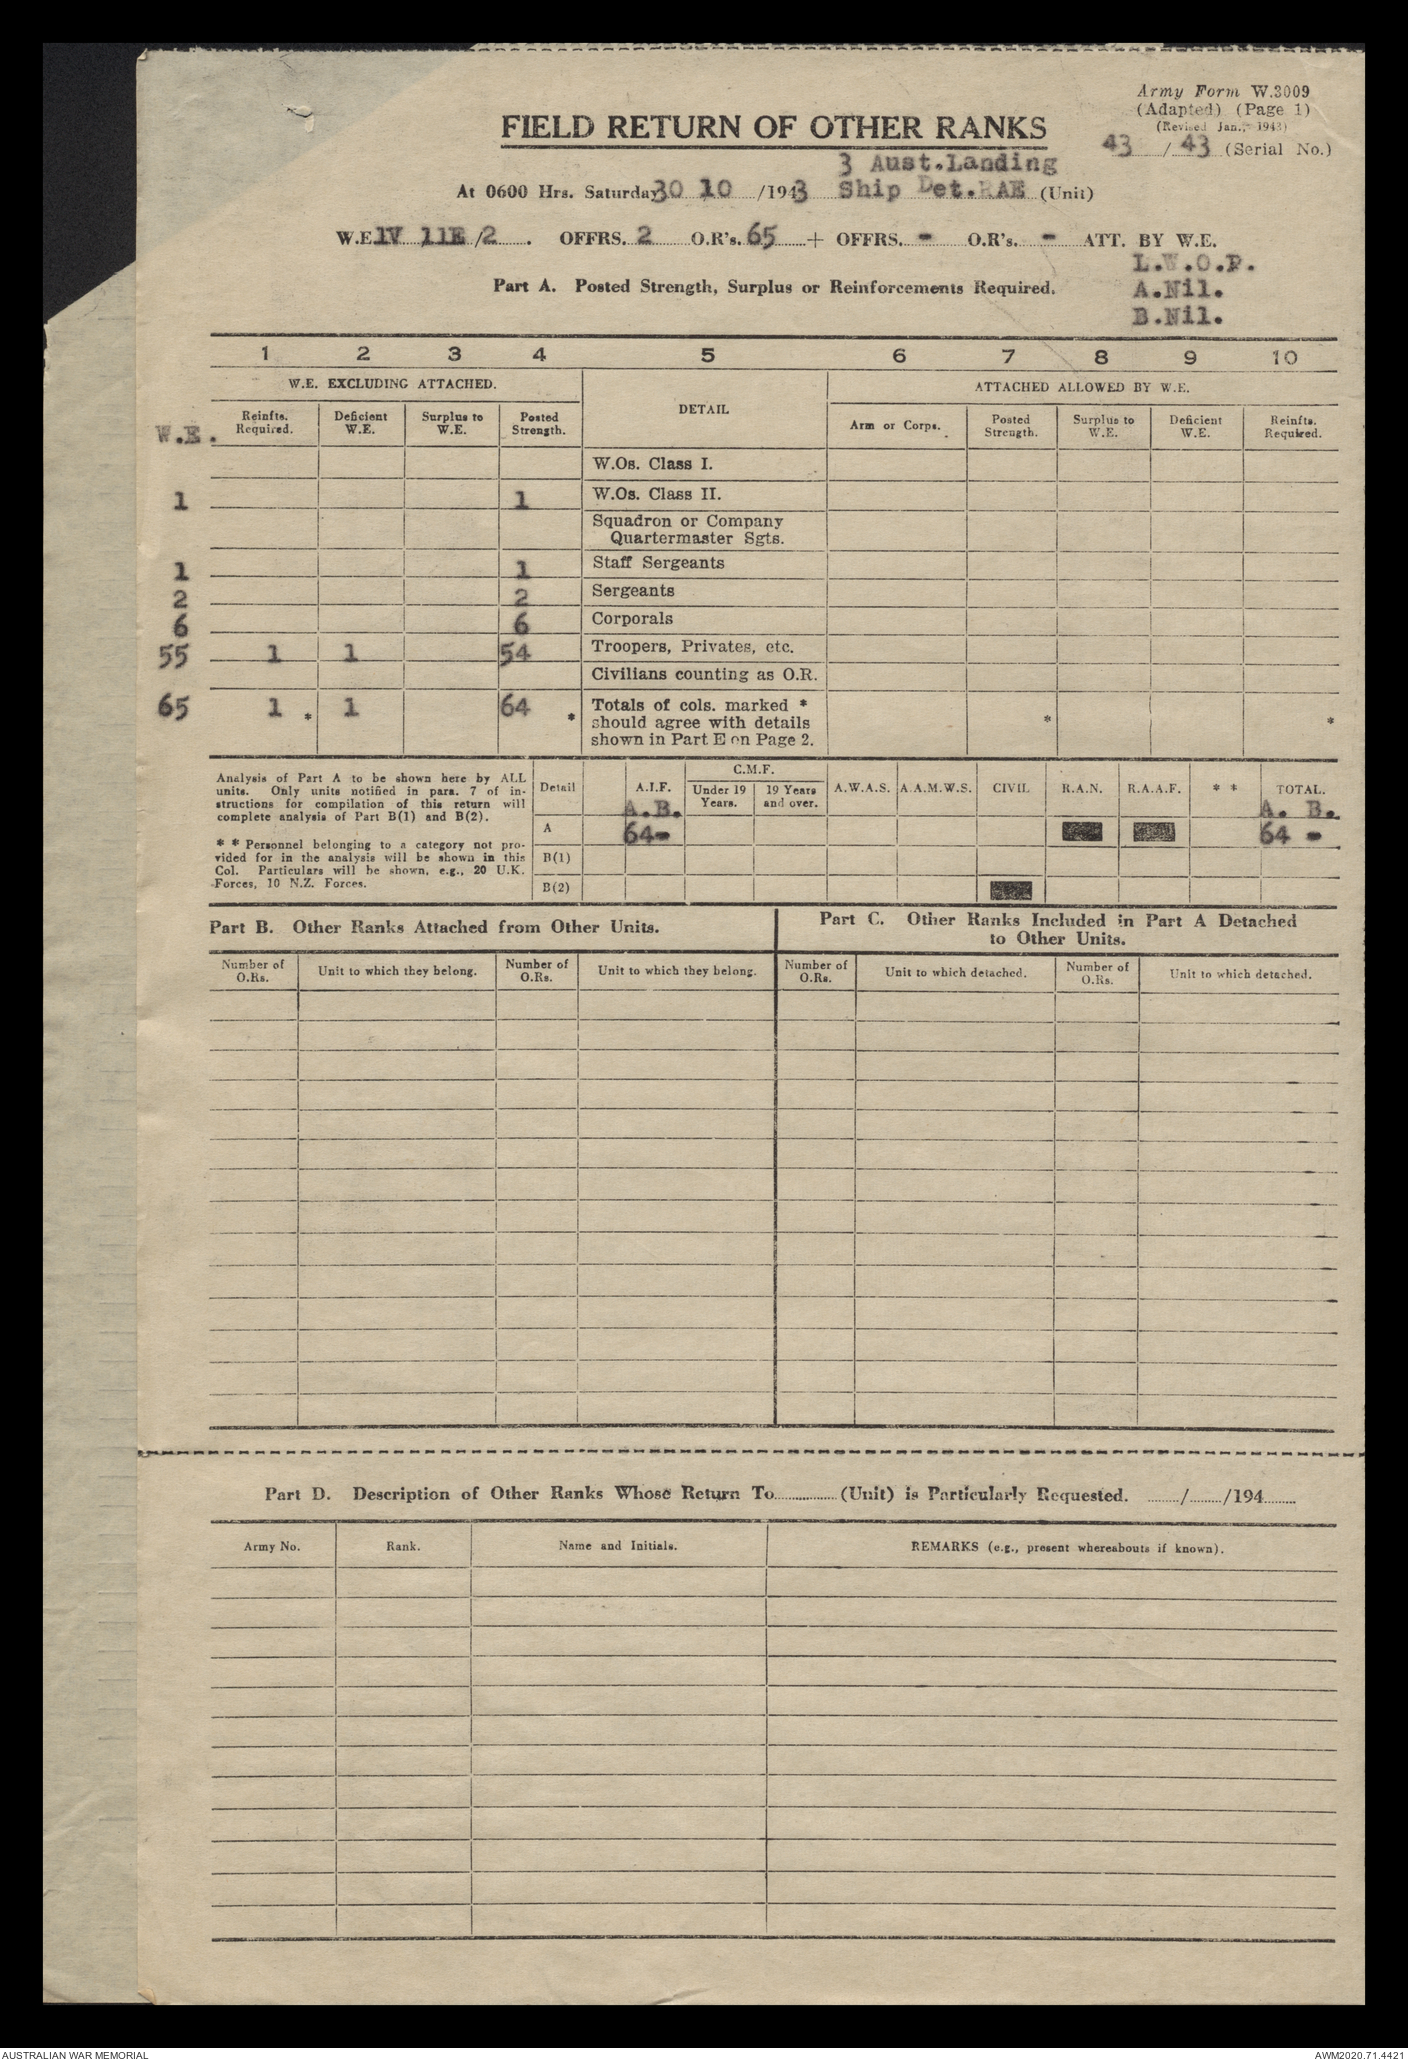 Army Form W.3009
(Adapted) (Page 1)
(Revised Jan., 1943)
43 / 43 (Serial No.)
FIELD RETURN OF OTHER RANKS
3 Aust.Landing
At 0600 Hrs. Saturday 30 10 /1943 Ship Det.RAE (Unit)
W.E. 1V 11E /2 . OFFRS. 2 O.R's. 65 + OFFRS. - O.R's. - ATT. BY W.E.
L.W.O.P.
Part A. Posted Strength, Surplus or Reinforcements Required. A.Nil.
B.Nil.
1 2 3 4 5 6 7 8 9 10
W.E. EXCLUDING ATTACHED. DETAIL ATTACHED ALLOWED BY W.E.
W.E. Reinfts. Required. Deficient W.E. Surplus to W.E. Posted Strength. Arm or Corps. Posted Strength. Surplus to W.E. Deficient W.E. Reinfts. Required.
W.Os. Class I.
1 1 W.Os. Class II.
Squadron or Company
Quartermaster Sgts.
1 1 Staff Sergeants
2 2 Sergeants
6 6 Corporals
55 1 1 54 Troopers, Privates, etc.
Civilians counting as O.R.
65 1 * 1 64 * Totals of cols. marked *
should agree with details * *
shown in Part E on Page 2.
Analysis of Part A to be shown here by ALL
units. Only units notified in para. 7 of in-
structions for compilation of this return will
complete analysis of Part B(1) and B(2).
* * Personnel belonging to a category not pro-
vided for in the analysis will be shown in this
Col. Particulars will be shown, e.g., 20 U.K.
Forces, 10 N.Z. Forces.
C.M.F.
Detail A.I.F. Under 19 Years. 19 Years and over. A.W.A.S. A.A.M.W.S. CIVIL R.A.N. R.A.A.F. * * TOTAL.
A.B. A. B.
A 64- 64 -
B(1)
B(2)
Part B. Other Ranks Attached from Other Units.
Part C. Other Ranks Included in Part A Detached
to Other Units.
Number of O.Rs. Unit to which they belong. Number of O.Rs. Unit to which they belong. Number of O.Rs. Unit to which detached. Number of O.Rs. Unit to which detached.
Part D. Description of Other Ranks Whose Return To............... (Unit) is Particularly Requested. ......../......../194........
Army No. Rank. Name and Initials. REMARKS (e.g., present whereabouts if known).
AUSTRALIAN WAR MEMORIAL AWM2020.71.4421